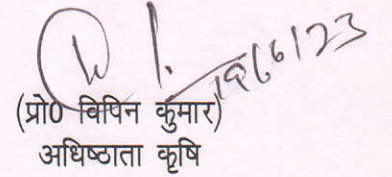 19/6/23
(प्रो0 विपिन कुमार)
अधिष्ठाता कृषि